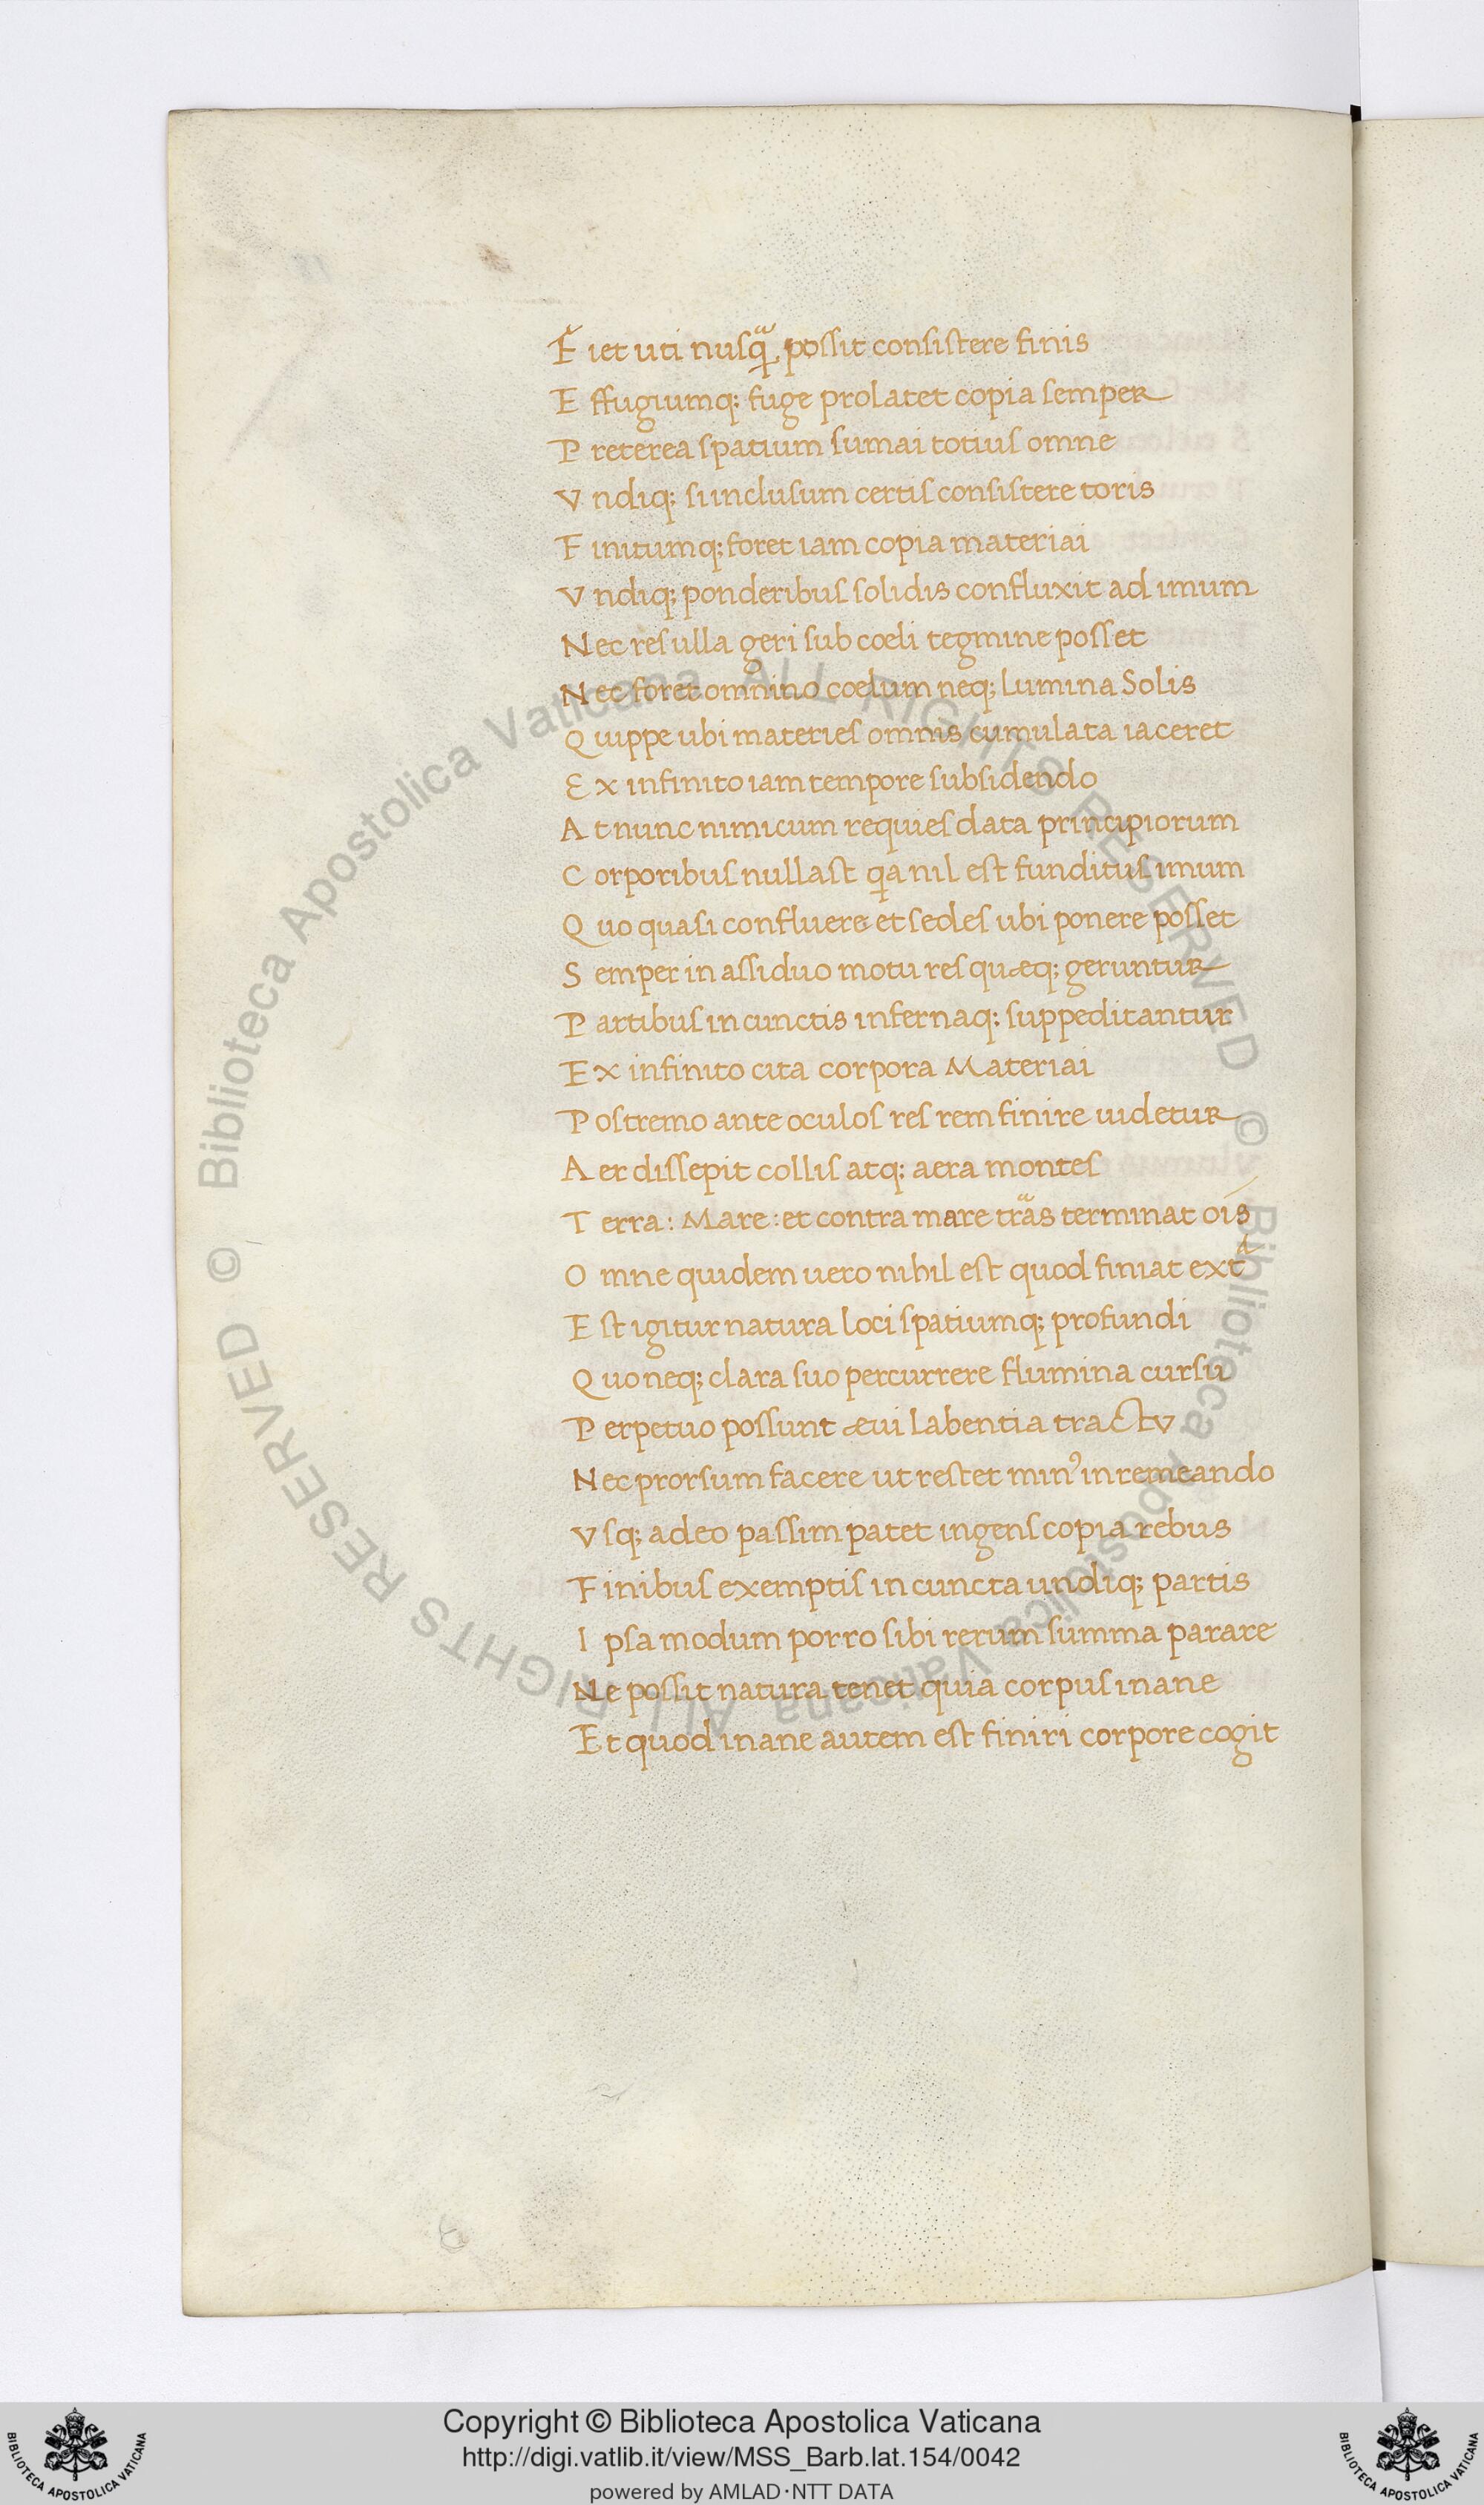 Fiet uti nusq̃ possit consistere finis
Effugiumq; fuge prolatet copia semper
Preterea spatium sumai totius omne
Vndiq; si inclusum certis consistere toris
Finitumq; foret iam copia materiai
Vndiq; ponderibus solidis confluxit ad imum
Nec res ulla geri sub coeli tegmine posset
Nec foret omnino coelum neq; lumina Solis
Quippe ubi materies omnis cumulata iaceret
Ex infinito iam tempore subsidendo
At nunc nimicum requies data principiorum
Corporibus nullast qa nil est funditus imum
Quo quasi confluere et sedes ubi ponere posset
Semper in assiduo motu res quæq; geruntur
Partibus in cunctis infernaq; suppeditantur
Ex infinito cita corpora Materiai
Postremo ante oculos res rem finire uidetur
Aer dissepit collis atq; aera montes
Terra: Mare: et contra mare trãs terminat oi̅s
Omne quidem uero nihil est quod finiat extᵃ
Est igitur natura loci spatiumq; profundi
Quo neq; clara suo percurrere flumina cursu
Perpetuo possunt æui labentia tractu
Nec prorsum facere ut restet minꝰ in remeando
Vsq; adeo passim patet ingens copia rebus
Finibus exemptis in cuncta undiq; partis
Ipsa modum porro sibi rerum summa parare
Ne possit natura tenet quia corpus inane
Et quod inane autem est finiri corpore cogit
© Biblioteca Apostolica Vaticana ALL RIGHTS RESERVED © Biblioteca Apostolica Vaticana ALL RIGHTS RESERVED
BIBLIOTECA APOSTOLICA VATICANA
Copyright © Biblioteca Apostolica Vaticana
http://digi.vatlib.it/view/MSS_Barb.lat.154/0042
powered by AMLAD·NTT DATA
BIBLIOTECA APOSTOLICA VATICANA